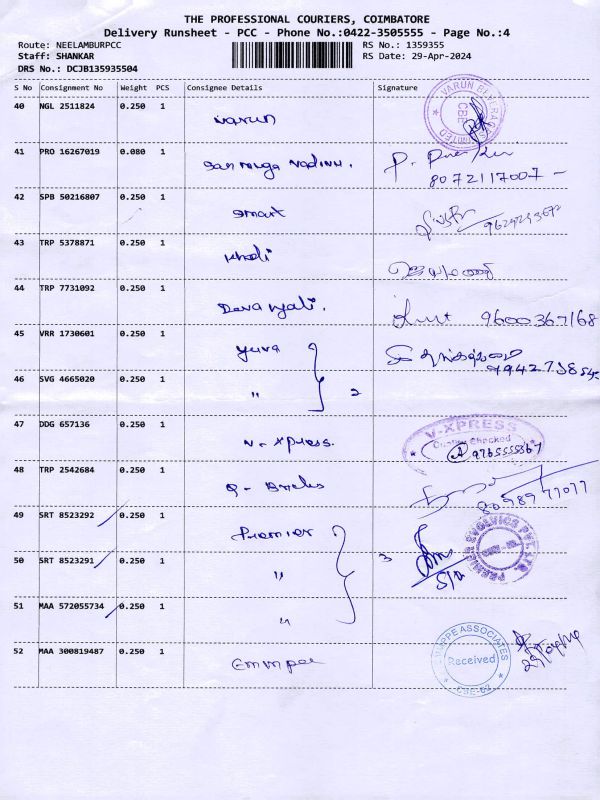 THE PROFESSIONAL COURIERS, COIMBATORE
Delivery Runsheet - PCC - Phone No.:0422-3505555 - Page No.:4
Route: NEELAMBURPCC RS No.: 1359355
Staff: SHANKAR RS Date: 29-Apr-2024
DRS No.: DCJB135935504
S No Consignment No Weight PCS Consignee Details Signature
40 NGL 2511824 0.250 1 Varun
CBE
41 PRO 16267019 0.080 1
8072117007
42 SPB 50216807 0.250 1 Smart
43 TRP 5378871 0.250 1
44 TRP 7731092 0.250 1 9600367168
45 VRR 1730601 0.250 1 yuva
46 SVG 4665020 0.250 1 " 2
47 DDG 657136 0.250 1 V-Xpress. V-XPRESS
Checked
48 TRP 2542684 0.250 1 Q-Bricks
49 SRT 8523292 0.250 1 Premier
50 SRT 8523291 0.250 1 " 3
51 MAA 572055734 0.250 1 "
52 MAA 300819487 0.250 1 ASSOCIATES
Received
CBE-62